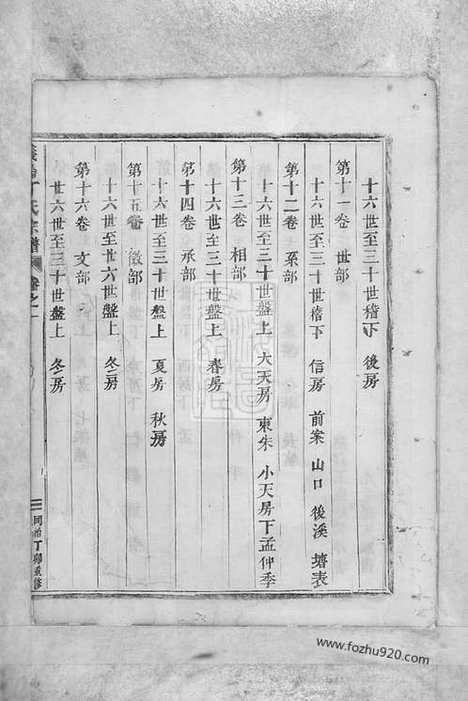 十六世至三十世稽下 後房
第十一卷 世部
十六世至三十世稽下 信房 前案 山口 後溪 塘表
第十二卷 系部
十六世至三十世盤上 大天房 東朱 小天房下孟仲季
第十三卷 相部
十六世至三十世盤上 春房
第十四卷 承部
十六世至三十世盤上 夏房 秋房
第十五卷 徵部
十六世至廿六世盤上 冬房
第十六卷 文部
廿六世至三十世盤上 冬房
丁氏宗譜 卷之一
同治丁卯重修
www.fozhu920.com